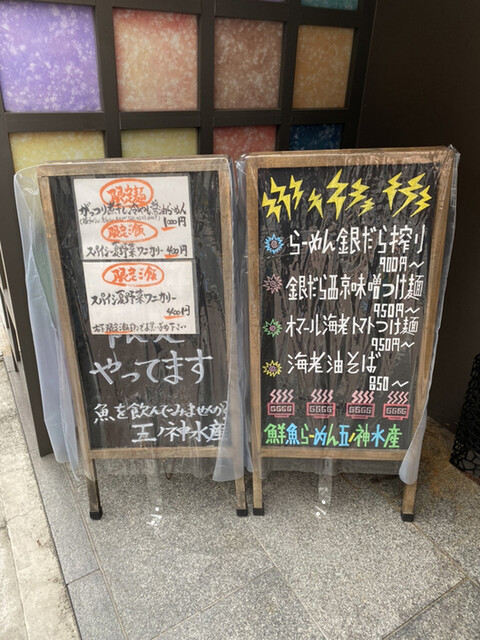 限定麺
がっつり煮干し冷やし醤油らぁめん
1000円
限定飯
スパイシー夏野菜ワニカリー 400円
限定飯
スパイシー夏野菜ワニカリー
400円
限定
やってます
魚を飲んでみませんか?
五ノ神水産
らーめん銀だら搾り
900円〜
銀だら西京味噌つけ麺
950円〜
オマール海老トマトつけ麺
950円〜
海老油そば
850〜
鮮魚らーめん五ノ神水産